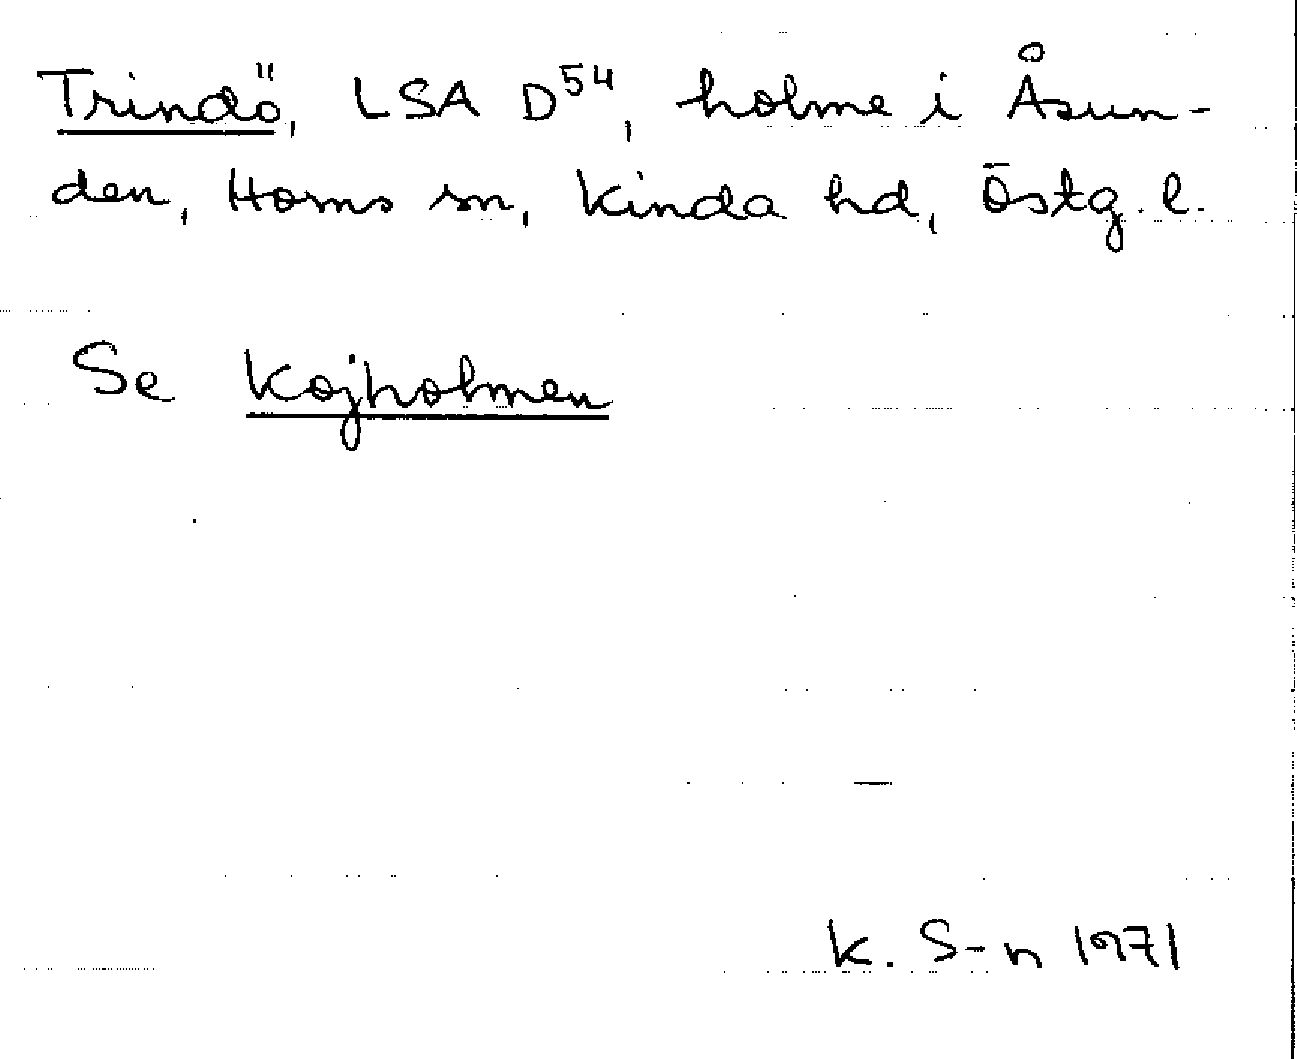 Trindö, LSA D54, holme i Åsun-
den, Horns sn, Kinda hd, Östg. l.
Se Kojholmen
K. S-n 1971